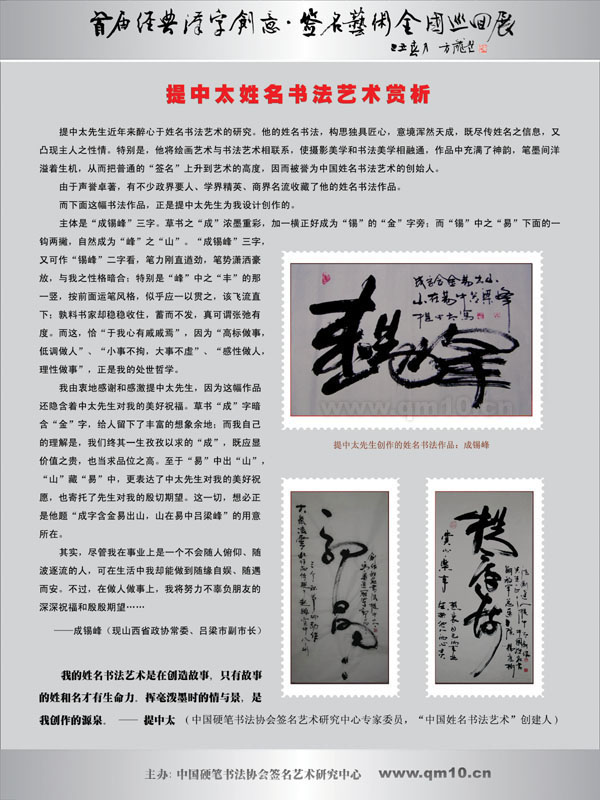 首届经典汉字创意·签名艺术全国巡回展
提中太姓名书法艺术赏析
提中太先生近年来醉心于姓名书法艺术的研究。他的姓名书法，构思独具匠心，意境浑然天成，既尽传姓名之信息，又
凸现主人之性情。特别是，他将绘画艺术与书法艺术相联系，使摄影美学和书法美学相融通，作品中充满了神韵，笔墨间洋
溢着生机，从而把普通的“签名”上升到艺术的高度，因而被誉为中国姓名书法艺术的创始人。
由于声誉卓著，有不少政界要人、学界精英、商界名流收藏了他的姓名书法作品。
而下面这幅书法作品，正是提中太先生为我设计创作的。
主体是“成锡峰”三字。草书之“成”浓墨重彩，加一横正好成为“锡”的“金”字旁；而“锡”中之“易”下面的一
钩两撇，自然成为“峰”之“山”。“成锡峰”三字，
又可作“锡峰”二字看，笔力刚直遒劲，笔势潇洒豪
放，与我之性格暗合；特别是“峰”中之“丰”的那
一竖，按前面运笔风格，似乎应一以贯之，该飞流直
下；孰料书家却稳稳收住，蓄而不发，真可谓张弛有
度。而这，恰“于我心有戚戚焉”，因为“高标做事，
低调做人”、“小事不拘，大事不虚”、“感性做人，
理性做事”，正是我的处世哲学。
我由衷地感谢和感激提中太先生，因为这幅作品
还隐含着中太先生对我的美好祝福。草书“成”字暗
含“金”字，给人留下了丰富的想象余地；而我自己
的理解是，我们终其一生孜孜以求的“成”，既应显
价值之贵，也当求品位之高。至于“易”中出“山”，
“山”藏“易”中，更表达了中太先生对我的美好祝
愿，也寄托了先生对我的殷切期望。这一切，想必正
是他题“成字含金易出山，山在易中吕梁峰”的用意
所在。
其实，尽管我在事业上是一个不会随人俯仰、随
波逐流的人，可在生活中我却能做到随缘自娱、随遇
而安。不过，在做人做事上，我将努力不辜负朋友的
深深祝福和殷殷期望……
——成锡峰（现山西省政协常委、吕梁市副市长）
www.qm10.cn
提中太先生创作的姓名书法作品：成锡峰
赏心乐事
我的姓名书法艺术是在创造故事，只有故事
的姓和名才有生命力，挥毫泼墨时的情与景，是
我创作的源泉。 —— 提中太 （中国硬笔书法协会签名艺术研究中心专家委员，“中国姓名书法艺术”创建人）
主办：中国硬笔书法协会签名艺术研究中心 www.qm10.cn